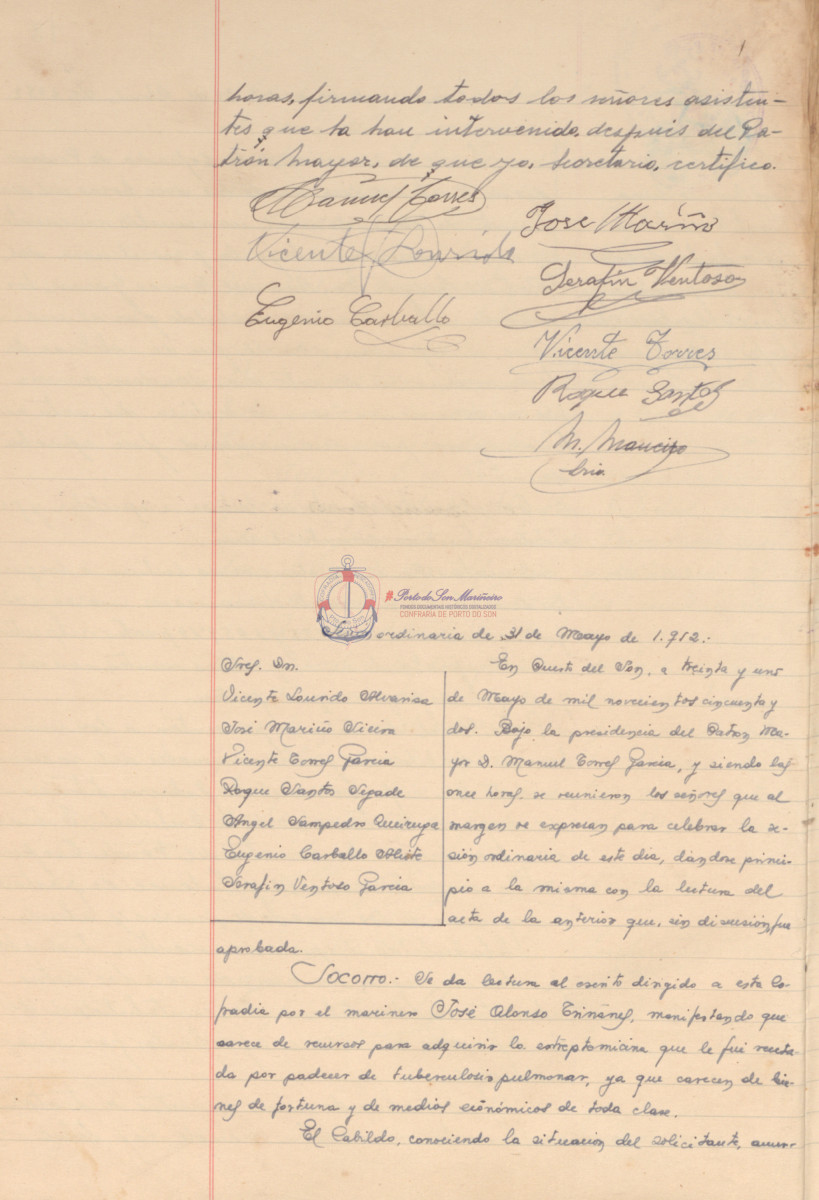 1
horas, firmando todos los señores asisten-
tes que la han intervenido, después del Pa-
trón Mayor, de que yo, secretario, certifico.
Manuel Torres
Jose Mariño
Vicente Lourido
Serafin Ventoso
Eugenio Carballo
Vicente Torres
Roque Santos
M. Maneiro
Srio.
#PortodoSonMariñeiro
FONDOS DOCUMENTAIS HISTÓRICOS DIXITALIZADOS
CONFRARÍA DE PORTO DO SON
ordinaria de 31 de Mayo de 1.952:
Sres. Dn.
Vicente Lourido
José Mariño Vieira
Vicente Torres Garcia
Roque Santos Segade
Angel Sampedro Queiruga
Eugenio Carballo
Serafin Ventoso Garcia
En Puerto del Son, a treinta y uno
de Mayo de mil novecientos cincuenta y
dos. Bajo la presidencia del Patron Ma-
yor D. Manuel Torres Garcia, y siendo las
once horas, se reunieron los señores que al
margen se expresan para celebrar la se-
sión ordinaria de este dia, dándose princi-
pio a la misma con la lectura del
acta de la anterior que, sin discusión, fue
aprobada.
Socorro.- Se da lectura al escrito dirigido a esta Co-
fradia por el marinero José Alonso Triñanes, manifestando que
carece de recursos para adquirir la estreptomicina que le fué receta-
da por padecer de tuberculosis pulmonar, ya que carecen de bie-
nes de fortuna y de medios económicos de toda clase.
El Cabildo, conociendo la situacion del solicitante, acuer-